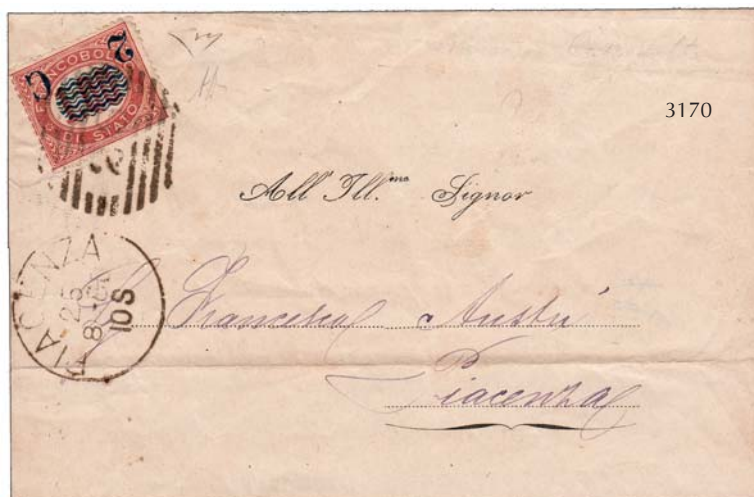 2 C
FRANCOBOLLO
DI STATO
3170
All' Ill.mo Signor
PIACENZA
25
8
10 S
Francesca
Piacenza